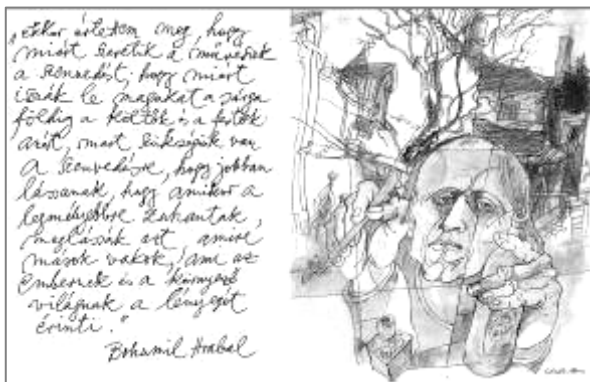 „ekkor értettem meg hogy
miért szeretik a művészek
a szenvedést, hogy miért
isszák le magukat a sárga
földig a költők és a festők
azért, mert szükségük van
a szenvedésre, hogy jobban
lássanak, hogy amikor a
legmélyebbre zuhantak,
meglássák azt, amire
mások vakok, ami az
embernek és a környező
világnak a lényegét
érinti."
Bohumil Hrabal